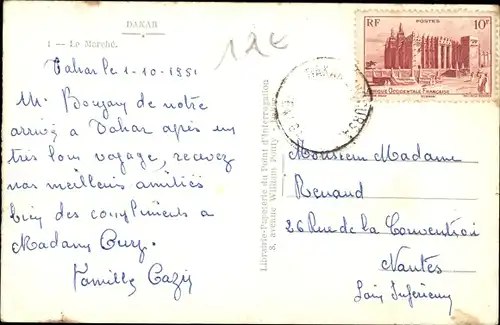 DAKAR
1 - Le Marché.
12€
Dakar le 1-10-1951
Mr Bouzay de notre
arrivé a Dakar après un
très bon voyage, recevez
nos meilleurs amitiés
bien des compliments a
Madame
Famille Cazy
Librairie-Papeterie du Point d'Interrogation
8, avenue William Ponty
DAKAR
RF POSTES 10F
AFRIQUE OCCIDENTALE FRANÇAISE
Monsieur Madame
Renaud
26 Rue de la Convention
Nantes
Loire Inférieure